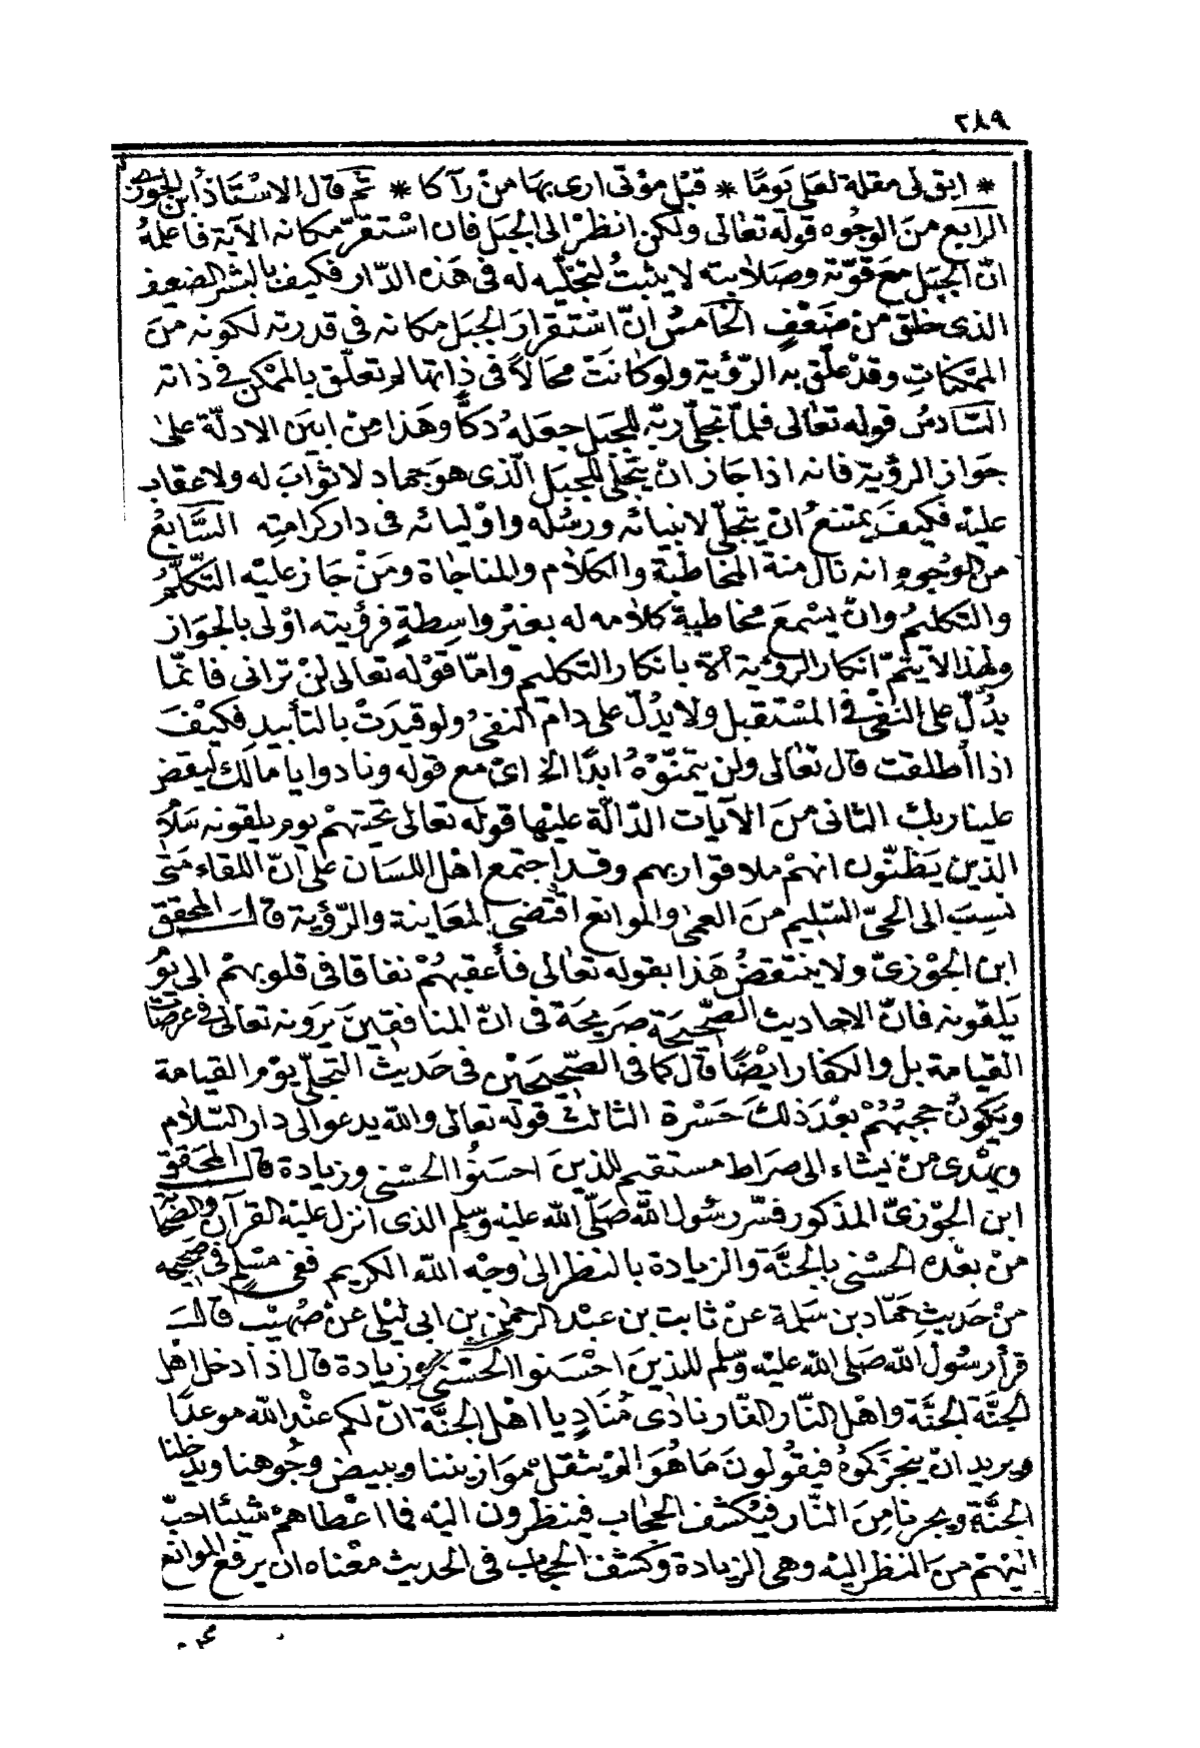 ٢٨٩
* ابق لى مقلة لعلى يَومًا * قبْل موْتى ارى بهَا منْ رآكا * ثم قال الاسْتَاذ ابن الجوزى
الرابع منَ الوجُوه قولَه تعَالى ولكن انظرْ الى الجبَل فان اسْتقرّ مكانه الآية فاعلمهُ
انّ الجبَل مَعَ قوّته وصَلابته لا يثبتُ لتجلّيه له فى هَذه الدّار فكيف بالبشر الضعيف
الذى خلق منْ ضَعْفٍ الخامسُ انّ اسْتقرارَ الجبَل مكانه فى قدرته لكونه منَ
الممْكناتِ وقدْ علّق به الرّؤية ولو كانَتْ محَالاً فى ذاتها لم تعلّق بالممْكن فى ذاته
السَّادسُ قولَه تعَالى فلمّا تجلّى ربّه للجبَل جعَلهُ دَكّاً وهَذا منْ ابيَن الادلّة علىَ
جوَاز الرؤية فانه اذا جَاز انْ يتجَلّى للجبَل الّذى هوَ جمادٌ لا ثوَابَ له ولا عقابَ
عليْه فكيفَ يمتنعُ انْ يتجَلّى لانبيائه ورسُله واوْليائه فى دار كرامتِه السَّابعُ
من الوجوه انه نال منهُ المخاطبة والكلَام والمناجَاة ومَنْ جَاز عليْه التكلّمُ
والتكليمُ وانْ يسْمعَ مخاطبه كلَامه له بغيْر واسِطةٍ فرؤيته اوْلى بالجوَاز
ولهذا لا يتمّ انكار الرؤية الا بانكار التكليم وامّا قوْله تعالى لنْ ترانى فانمّا
يدُلّ على النفْى فى المسْتقبل ولا يدُلّ على دوام النفىْ ولو قيدَتْ بالتأبيد فكيْفَ
اذا أطلقت قال تعَالى ولن يتمنّوْهُ ابدًا الخ اىْ مع قوله ونادوا يا مالك ليقض
علينا ربك الثانى منَ الآيات الدّالّة عليْها قوله تعَالى تحيّتهمْ يوم يلقونه سَلام
الذينَ يَظنّون انهمْ ملاقوا ربهم وقد اجتمع اهْل اللسَان على انّ اللقاء متىَ
نسِبَ الى الحىّ السّليم منَ العمىَ والموانع اقتضى المعَاينة والرّؤية قال المحَقق
ابن الجوْزىّ ولا ينتقضُ هَذا بقوله تعَالى فأعقبهُمْ نفاقا فى قلوبهمْ الى يوْم
يَلقوْنه فانّ الاحاديث الصّحيحَة صَريحَة فى انّ المنافقينَ يرَونه تعالى فى عرصَات
القيامة بل والكفار ايْضًا قال كما فى الصّحيحَيْن فى حَديث التجلّى يوْم القيامة
ويَكونُ حجبهُمْ بعْدَ ذلكَ حَسْرة الثالث قولَه تعَالى والله يدعو الى دار السّلام
ويهْدى منْ يشاء الى صراط مستقيم للذينَ احسَنوُا الحسْنى وزيادة قال المحَقق
ابن الجوْزىّ المذكور فسّر رسُول اللّه صَلّى الله عليْه وسَلّم الذى انزل عليْه القرآن والصَحابة
منْ بعْده الحسْنى بالجنَّة والزيادة بالنظر الىَ وجْه اللّه الكريم ففى مسْلم فى صَحيحه
منْ حَديث حَمّاد بن سَلمة عنْ ثابت بن عبْد الرحمٰن بن ابى ليْلى عنْ صُهيْب قال
قرأ رسُول الله صَلى الله عليْه وسَلّم للذينَ احْسَنوا الحسْنى وزيادة قال اذا دخل اهْل
الجنَّة الجنَّة واهْل النّار النّار نادَى مُنَادٍ يا اهْل الجنَّة انّ لكم عنْد الله موعدًا
ويريد انْ ينجزَكموُهُ فيقُولونَ مَا هُوَ المْ يثقلْ موَازيننا ويبيض وجُوهنا ويدخلنا
الجنَّة ويجرنا منَ النّار فيكْشف الحجَاب فينظرون اليْه فما اعْطاهمْ شيْئا احبّ
اليْهمْ منَ النظر اليْه وهى الزيادة وكشْف الحجَاب فى الحديث معْناه انْ يرفع الموانع